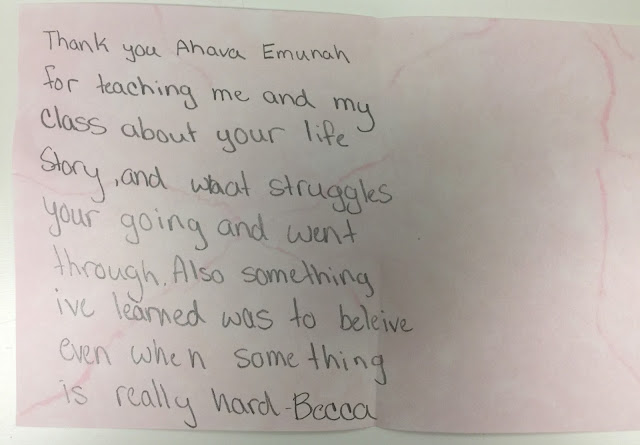 Thank you Ahava Emunah
for teaching me and my
class about your life
Story, and what struggles
your going and went
through. Also something
ive learned was to beleive
even when something
is really hard -Becca